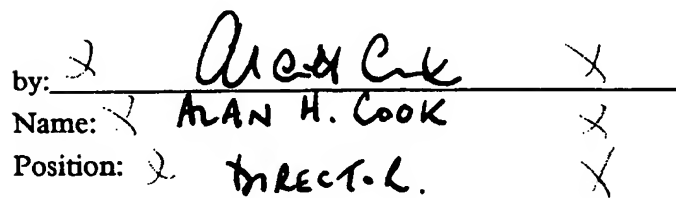 by: x Alan H Cook x
Name: x ALAN H. COOK x
Position: x DIRECTOR. x